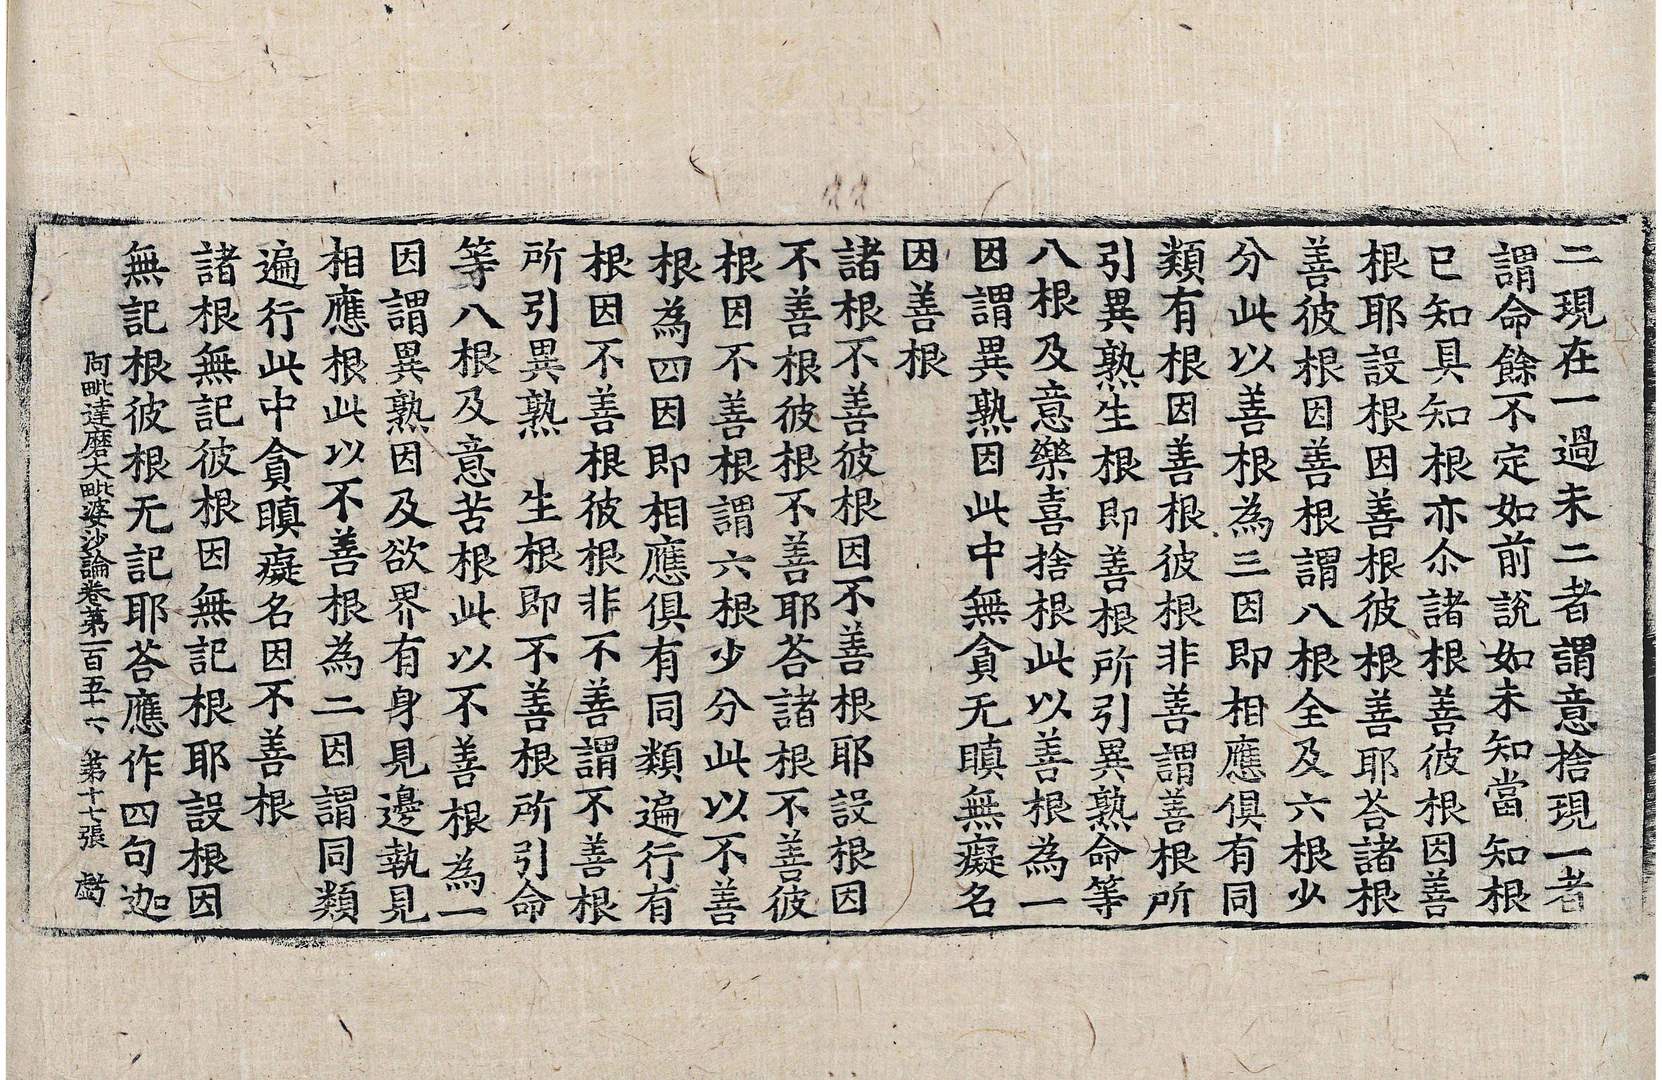 二現在一過未二者謂意捨現一者
謂命餘不定如前說如未知當知根
已知具知根亦尒諸根善彼根因善
根耶設根因善根彼根善耶荅諸根
善彼根因善根謂八根全及六根少
分此以善根為三因即相應俱有同
類有根因善根彼根非善謂善根所
引異熟生根即善根所引異熟命等
八根及意樂喜捨根此以善根為一
因謂異熟因此中無貪无瞋無癡名
因善根
諸根不善彼根因不善根耶設根因
不善根彼根不善耶荅諸根不善彼
根因不善根謂六根少分此以不善
根為四因即相應俱有同類遍行有
根因不善根彼根非不善謂不善根
所引異熟 生根即不善根所引命
等八根及意苦根此以不善根為一
因謂異熟因及欲界有身見邊執見
相應根此以不善根為二因謂同類
遍行此中貪瞋癡名因不善根
諸根無記彼根因無記根耶設根因
無記根彼根无記耶荅應作四句迦
阿毗達磨大毗婆沙論卷第一百五十六 第十七張